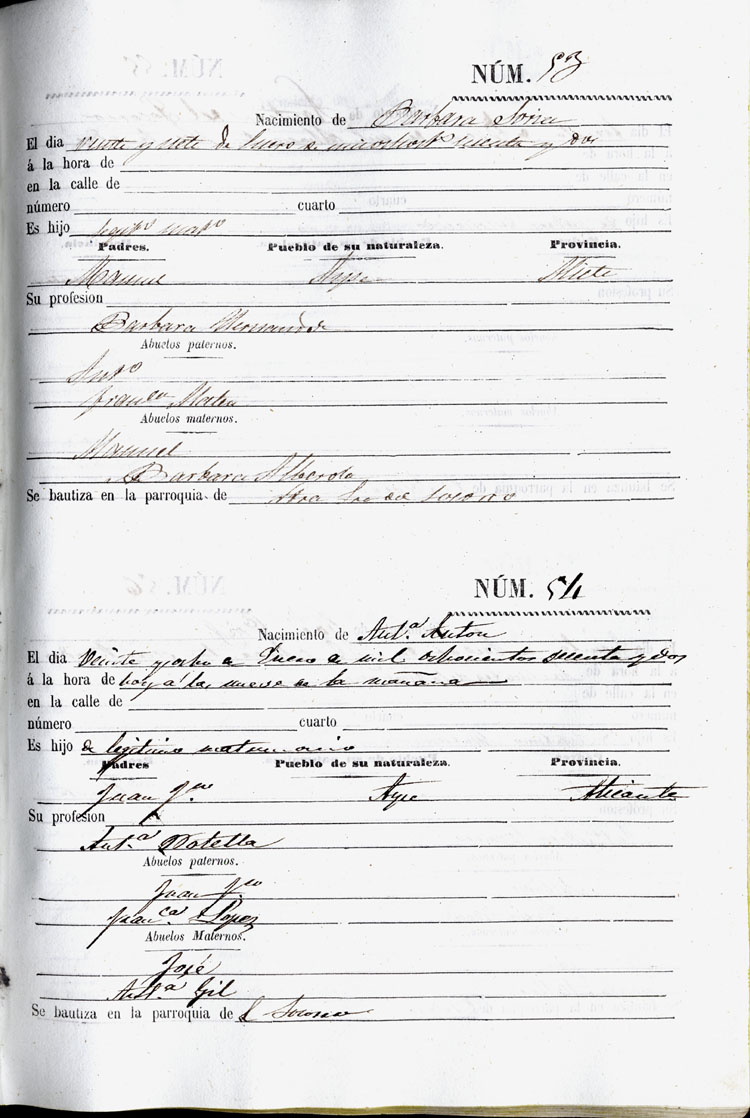 NÚM. 53
Nacimiento de Barbara Soria
El dia veinte y siete de Enero de mil ochost sesenta y dos
á la hora de
en la calle de
número cuarto
Es hijo legitº matº
Padres. Pueblo de su naturaleza. Provincia.
Manuel Aspe Alicte
Su profesion
Barbara Hernandez
Abuelos paternos.
Antº
Franca Mateu
Abuelos maternos.
Manuel
Barbara Alberola
Se bautiza en la parroquia de Ntra Sra del Socorro
NÚM. 54
Nacimiento de Antª Anton
El dia Veinte y ocho de Enero de mil ochocientos sesenta y dos
á la hora de hoy a las nueve de la mañana
en la calle de
número cuarto
Es hijo de legitimo matrimonio
Padres Pueblo de su naturaleza. Provincia.
Juan Aspe Alicante
Su profesion
Antª Botella
Abuelos paternos.
Juan
Juanca Lopez
Abuelos Maternos.
José
Antª Gil
Se bautiza en la parroquia de l Socorro